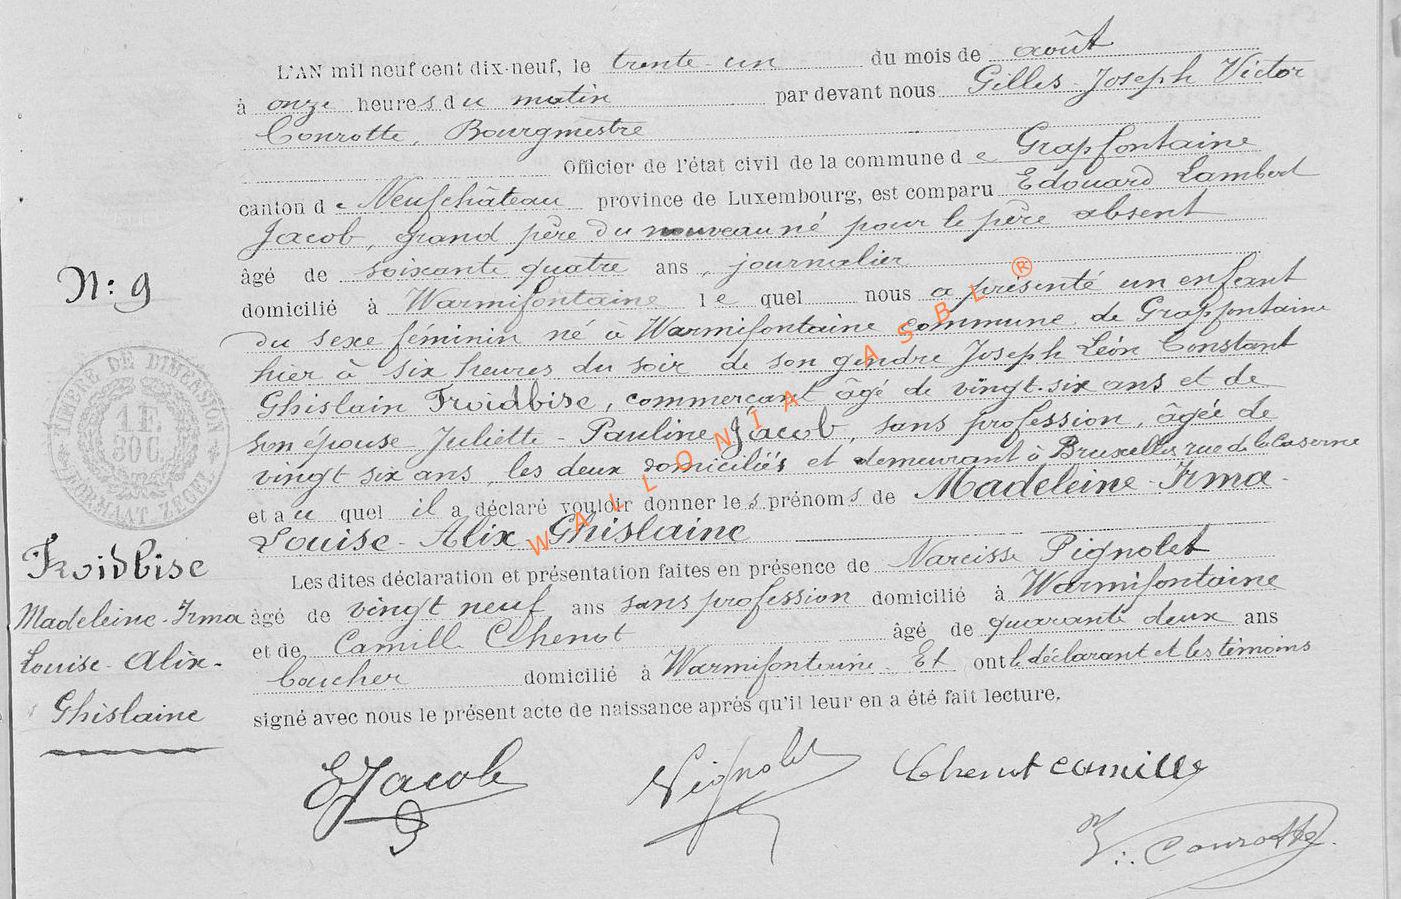 L'AN mil neuf cent dix-neuf, le trente-un du mois de août
à onze heures du matin par devant nous Gilles Joseph Victor
Conrotte, Bourgmestre
Officier de l'état civil de la commune de Grapfontaine
canton de Neufchâteau province de Luxembourg, est comparu Edouard Lambert
Jacob, grand père du nouveau né pour le père absent
âgé de soixante quatre ans, journalier
domicilié à Warmifontaine lequel nous a présenté un enfant
du sexe féminin né à Warmifontaine commune de Grapfontaine
hier à six heures du soir de son gendre Joseph Léon Constant
Ghislain Froidbise, commerçant âgé de vingt-six ans et de
son épouse Juliette-Pauline Jacob, sans profession, âgée de
vingt six ans, les deux domiciliés et demeurant à Bruxelles rue de la Caserne
et au quel il a déclaré vouloir donner les prénoms de Madeleine-Irma-
Louise-Alix Ghislaine
Les dites déclaration et présentation faites en présence de Narcisse Pignolet
âgé de vingt neuf ans sans profession domicilié à Warmifontaine
et de Camille Chenot âgé de quarante deux ans
domicilié à Warmifontaine. Et ont le déclarant et les témoins
signé avec nous le présent acte de naissance après qu'il leur en a été fait lecture.
N: 9
TIMBRE DE DIMENSION
1F.
30C.
FORMAAT ZEGEL
Froidbise
Madeleine-Irma
Louise-Alix-
Ghislaine
EJacob
Pignolet
Chenot camille
V: Conrotte
WALLONIA ASBL ®